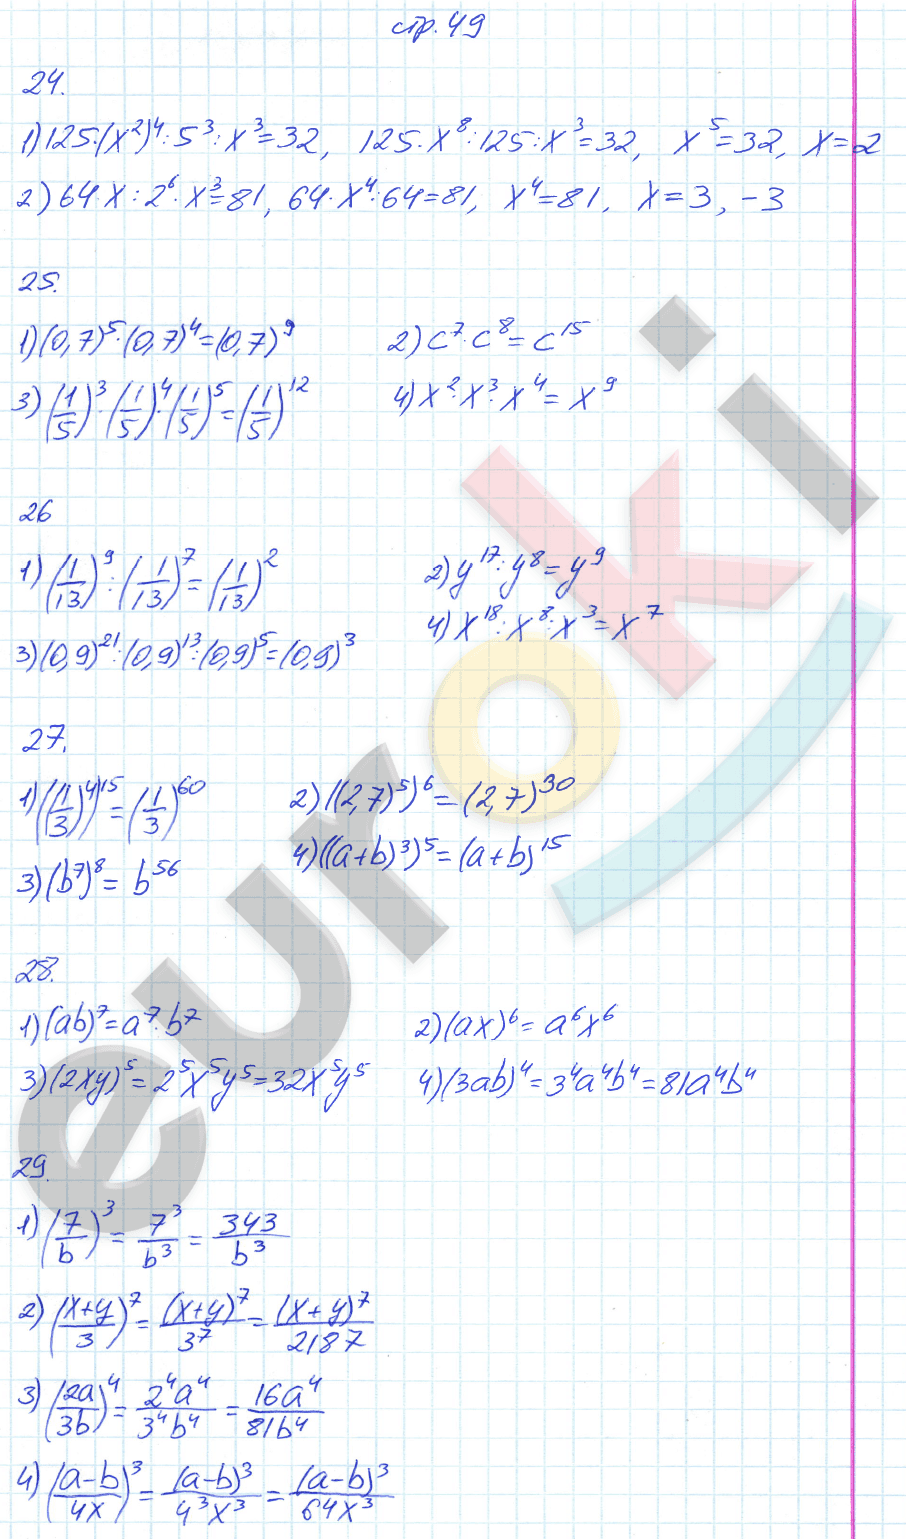 стр. 49
24.
1) 125·(x²)⁴ : 5³ : x³ = 32, 125·x⁸ : 125 : x³ = 32, x⁵ = 32, x = 2
2) 64·x : 2⁶ · x³ = 81, 64·x⁴ : 64 = 81, x⁴ = 81, x = 3, -3
25.
1) (0,7)⁵·(0,7)⁴ = (0,7)⁹ 2) c⁷·c⁸ = c¹⁵
3) (1/5)³·(1/5)⁴·(1/5)⁵ = (1/5)¹² 4) x²·x³·x⁴ = x⁹
26
1) (1/13)⁹ : (1/13)⁷ = (1/13)² 2) y¹⁷ : y⁸ = y⁹
3) (0,9)²¹ : (0,9)¹³ : (0,9)⁵ = (0,9)³ 4) x¹⁸ : x⁸ : x³ = x⁷
27.
1) ((1/3)⁴)¹⁵ = (1/3)⁶⁰ 2) ((2,7)⁵)⁶ = (2,7)³⁰
3) (b⁷)⁸ = b⁵⁶ 4) ((a+b)³)⁵ = (a+b)¹⁵
28.
1) (ab)⁷ = a⁷·b⁷ 2) (ax)⁶ = a⁶x⁶
3) (2xy)⁵ = 2⁵x⁵y⁵ = 32x⁵y⁵ 4) (3ab)⁴ = 3⁴a⁴b⁴ = 81a⁴b⁴
29.
1) (7/b)³ = 7³/b³ = 343/b³
2) ((x+y)/3)⁷ = (x+y)⁷/3⁷ = (x+y)⁷/2187
3) (2a/3b)⁴ = 2⁴a⁴/3⁴b⁴ = 16a⁴/81b⁴
4) ((a-b)/4x)³ = (a-b)³/4³x³ = (a-b)³/64x³
euroki